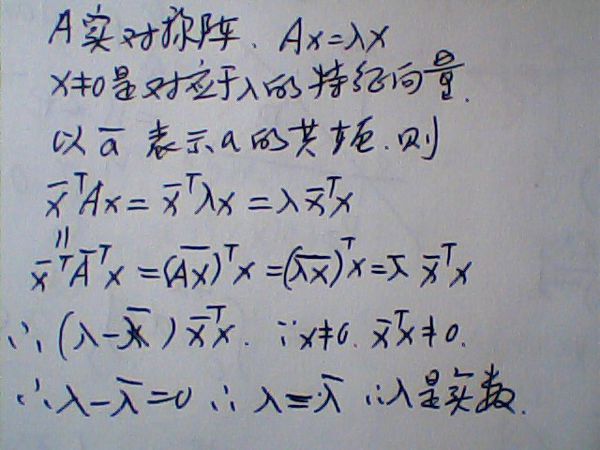 A实对称阵. Ax=λx
x≠0是对应于λ的特征向量.
以 ā 表示a的共轭.则
x̄ᵀAx = x̄ᵀλx = λx̄ᵀx
||
x̄ᵀĀᵀx = (A̅x̅)ᵀx = (λ̅x̅)ᵀx = λ̄ x̄ᵀx
∴ (λ-λ̄) x̄ᵀx. ∵x≠0. x̄ᵀx≠0.
∴ λ-λ̄=0 ∴ λ=λ̄ ∴λ是实数.